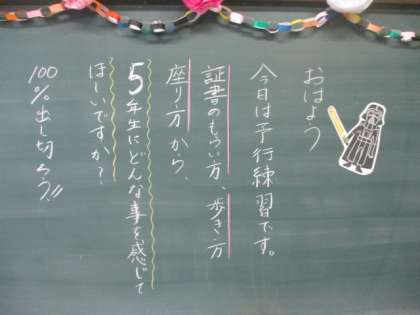 おはよう
今日は予行練習です。
証書のもらい方、歩き方
座り方から、
5年生にどんな事を感じて
ほしいですか?
100%出し切ろう!!